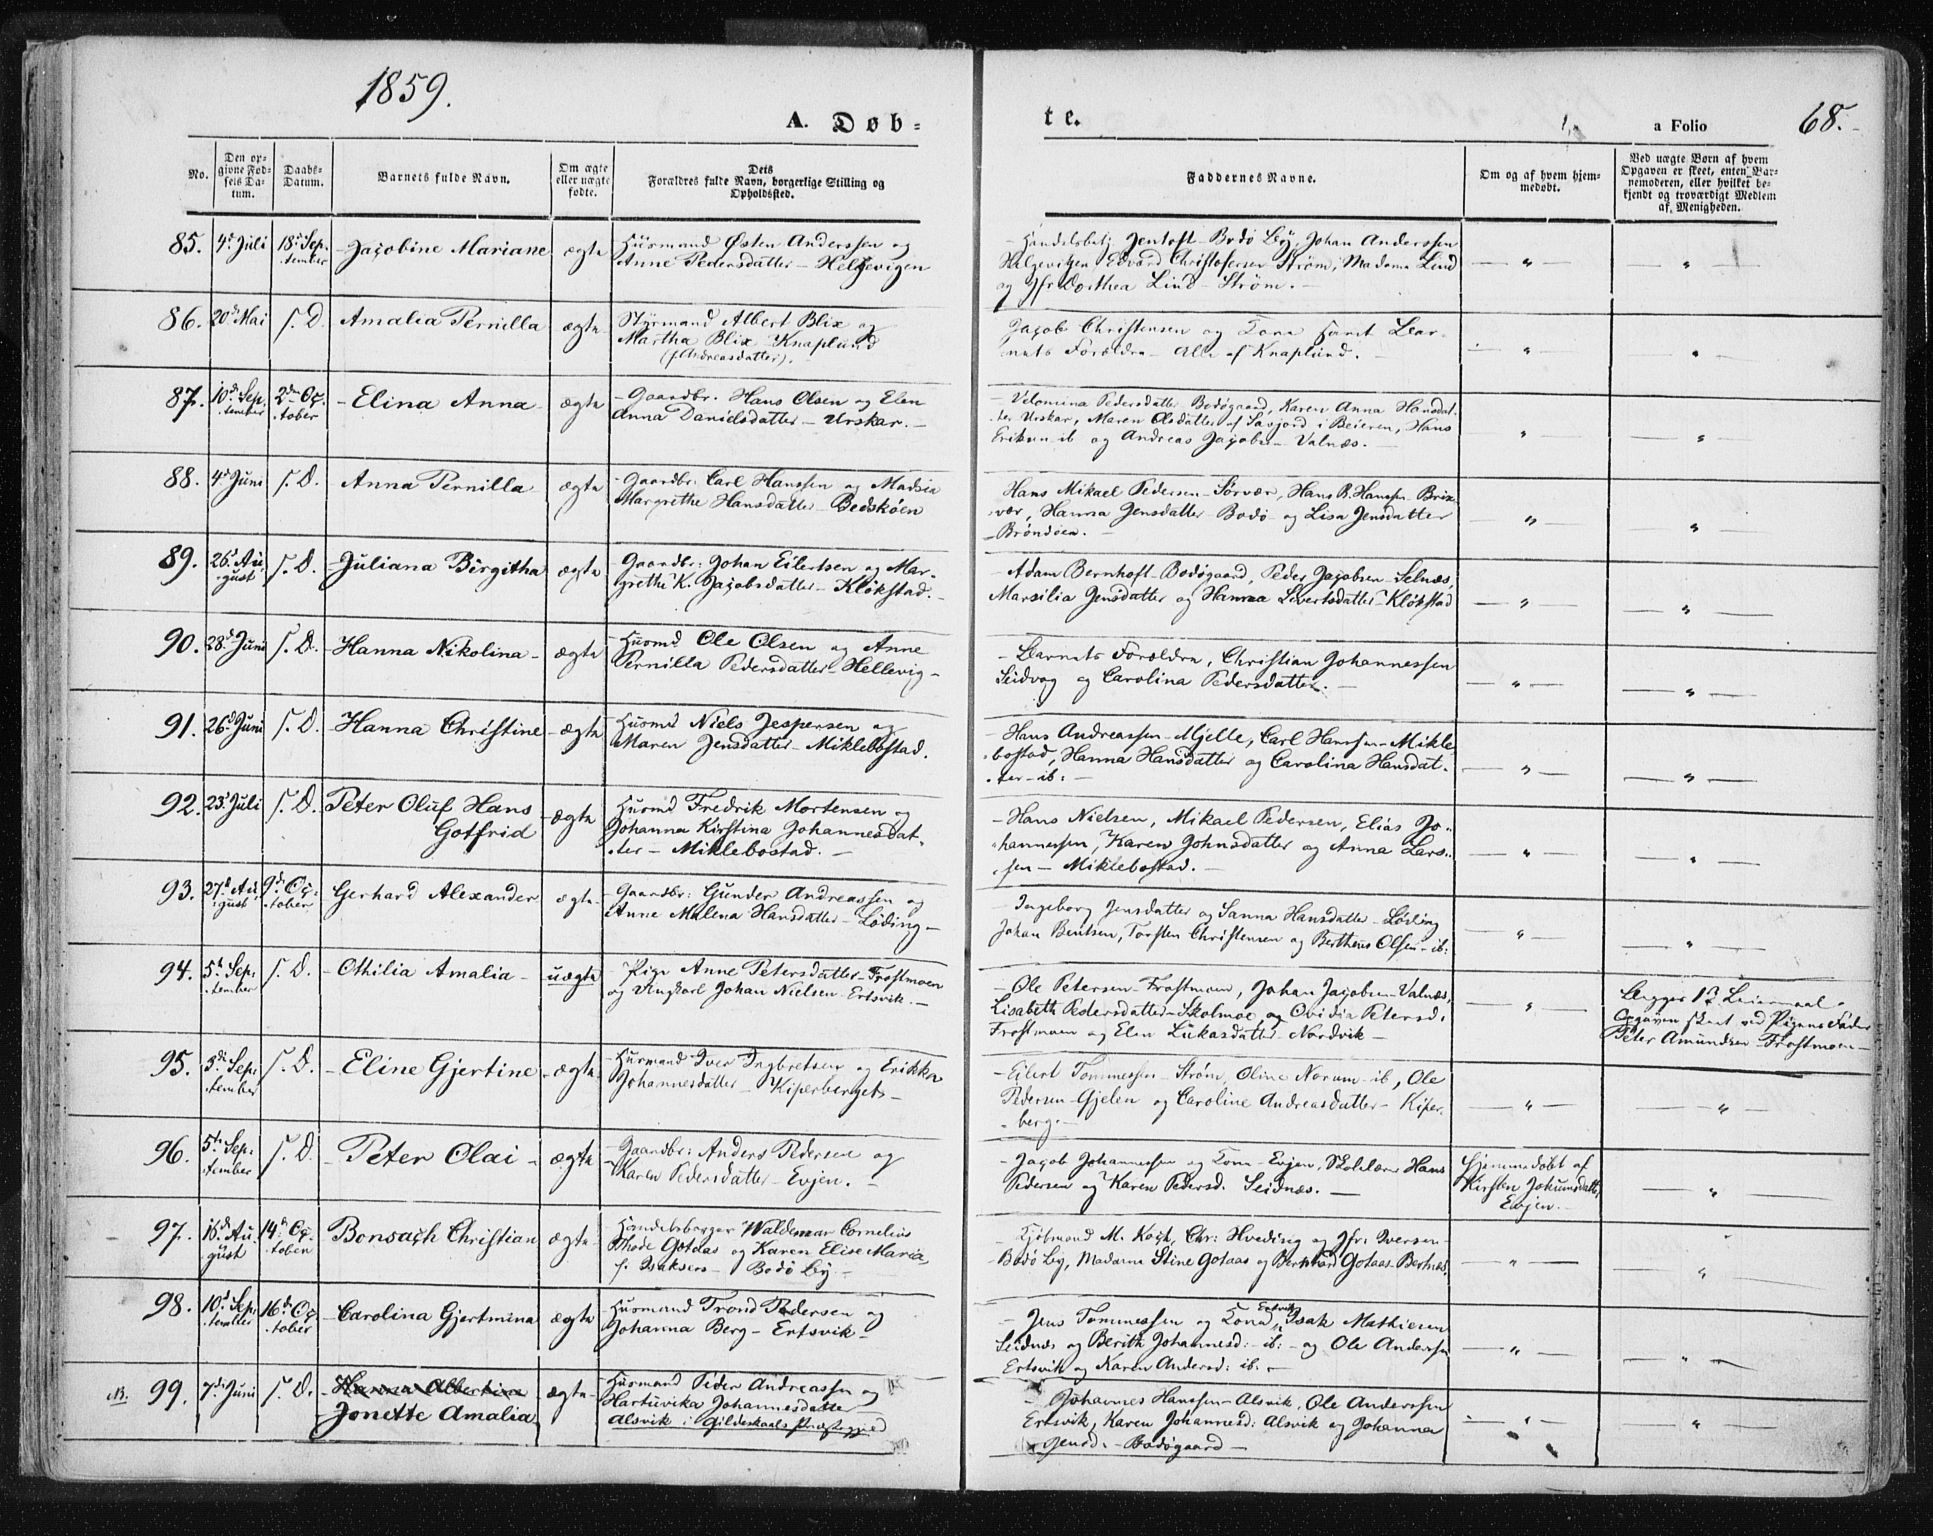 1859.
A. Døb-
te.
a Folio
68.
No.
Den op-
givne Fød-
sels Da-
tum.
Daabs-
Datum.
Barnets fulde Navn.
Om ægte
eller uægte
fødte.
Dets
Forældres fulde Navn, borgerlige Stilling og
Opholdssted.
Faddernes Navne.
Om og af hvem hjem-
medøbt.
Ved uægte Børn af hvem
Opgaven er skeet, enten Bar-
nemoderen, eller hvilket be-
kjendt og troværdigt Medlem
af Menigheden.
85. 4d Juli 18d Sep-
tember
Jacobine Mariane ægte
Huusmand Østen Anderssen og
Anne Pedersdatter – Helgevigen
Handelsbetj. Jentoft – Bodø By, Johan Anderssen
Helgevigen Edvard Christofersen Strøm, Madame Lind
og Jfr Dorthea Lind – Strøm. –
86. 20d Mai s. D. Amalia Pernilla ægte
Styrmand Albert Blix og
Martha Blix Knaplund
(f. Andreasdatter).
Jacob Christensen og Kona samt Bar-
nets Forældre – Alle af Knaplund.
87. 10d Sep-
tember
2den Oc-
tober
Elina Anna ægte
Gaardbr. Hans Olsen og Elen
Anna Danielsdatter – Urskar. –
Velomina Pedersdatter Bodøgaard, Karen Anna Hansdat-
ter Urskar, Maren Olsdatter af Savjord i Beieren, Hans
Eriksen ib og Andreas Jacobsen – Valnæs. –
88. 4d Juni s. D. Anna Pernilla ægte
Gaardbr: Carl Hanssen og Madsia
Margrethe Hansdatter – Bodskøen
Hans Mikael Pedersen – Sørvær, Hans R. Hanssen – Brix-
vær, Hanna Jensdatter – Bodø – og Lisa Jensdatter
Brøndøen. –
89. 26d Au-
gust
s. D. Juliana Birgitha ægte
Gaardbr: Johan Eilertsen og Mar-
grethe K. Jacobsdatter – Kløkstad. –
Adam Bernhoft – Bodøgaard, Peder Jacobsen – Selnæs,
Marsilia Jensdatter og Hanna Sivertsdatter – Kløkstad
90. 28d Juni s. D. Hanna Nikolina – ægte
Huusmd Ole Olsen og Anne
Pernilla Pedersdatter – Hellevig –
Barnets Forældre, Christian Johannessen
Seivaag og Carolina Pedersdatter. –
91. 26d Juni s. D. Hanna Christine – ægte
Huusmd Niels Jespersen og
Maren Jensdatter – Miklebostad.
Hans Andreassen – Mjelle, Carl Hanssen – Mikle-
bostad, Hanna Hansdatter og Carolina Hansdat-
ter – ib: –
92. 23d Juli s. D. Peter Oluf Hans
Gotfrid
ægte
Huusmd Fredrik Mortensen og
Johanna Kirstina Johannesdat-
ter – Miklebostad. –
Hans Nielsen, Mikael Pedersen, Elias Jo-
hannessen, Karen Johnsdatter og Anna Lars-
sen – Miklebostad. –
93. 27d Au-
gust
9de Oc-
tober
Gerhard Alexander ægte
Gaardbr: Gunder Andreassen og
Anne Malena Hansdatter – Løding –
Ingeborg Jensdatter og Sanna Hansdatter – Løding
Johan Bentsen, Torsten Christensen og Bertheus Olsen – ib:
94. 5te Sep-
tember
s. D. Othilia Amalia – uægte
Pige Anne Petersdatter – Frostmoen
og Ungkarl Johan Nielsen – Ertsvik. –
Ole Petersen – Frostmoen, Johan Jacobsen – Valnæs,
Lisabeth Pedersdatter – Skolmoe, og Ovidia Petersd:
Frostmoen og Elen Lukasdatter – Nordvik –
Begges 1ste Leiermaal –
Opgaven skeet ved Pigens Fader
Peter Amundsen – Frostmoen –
95. 3die Sep-
tember
s. D. Eline Gjertine – ægte
Huusmand Iver Ingbretsen og Erikka
Johannesdatter – Kiperberget –
Eilert Tommessen – Strøm, Oline Norum – ib, Ole
Pedersen – Gjelen og Caroline Andreasdatter – Kiper-
berg. –
96. 5te Sep-
tember
s. D. Peter Olai – ægte
Gaardbr: Anders Pedersen og
Karen Pedersdatter – Evjen. –
Jacob Johannessen og Kona – Evjen, Skolelærer Hans
Pedersen og Karen Pedersd. Seidnæs. –
Hjemmedøbt af
Kirsten Jokumsdatter,
Evjen. –
97. 16de Au-
gust
14de Oc-
tober
Bonsach Christian ægte
Handelsborger Waldemar Cornelius
Rhode Gotaas og Karen Elise Maria
f. Isaksen – Bodø By –
Kjøbmand M. Koch, Chr: Hveding og Jfr: Iversen
Bodø By, Madame Stine Gotaas og Bernhard Gotaas – Bertnæs.
98. 10d Sep-
tember
16de Oc-
tober
Carolina Gjertmina ægte
Huusmand Trond Pedersen og
Johanna Berg – Ertsvik –
Jens Tommessen og Kona Ertsvik, Isak Mathiesen
Seidnæs og Berith Johannesd: ib: – og Ole Anderssen
Ertsvik og Karen Andersd: ib: –
NB. 99. 7de Juni s. D. Hanna Albertina
Jonette Amalia
ægte
Huusmand Peder Andreassen og
Hartuvika Johannesdatter
Alsvik i Gildeskaals Præstegjeld
Johannes Hanssen – Alsvik, Ole Anderssen
Ertsvik, Karen Johannesd: Alsvik og Johanna
Jensd. – Bodøgaard –